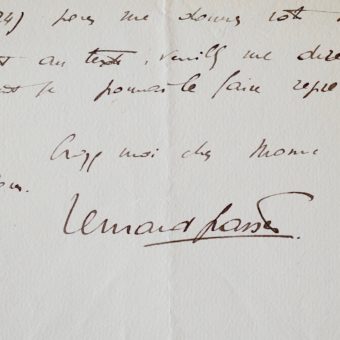 24) pour me donner
au texte, veuillez me dire
je pourrai le faire repr
Croyez moi cher Monsi
Bernard Grasset.